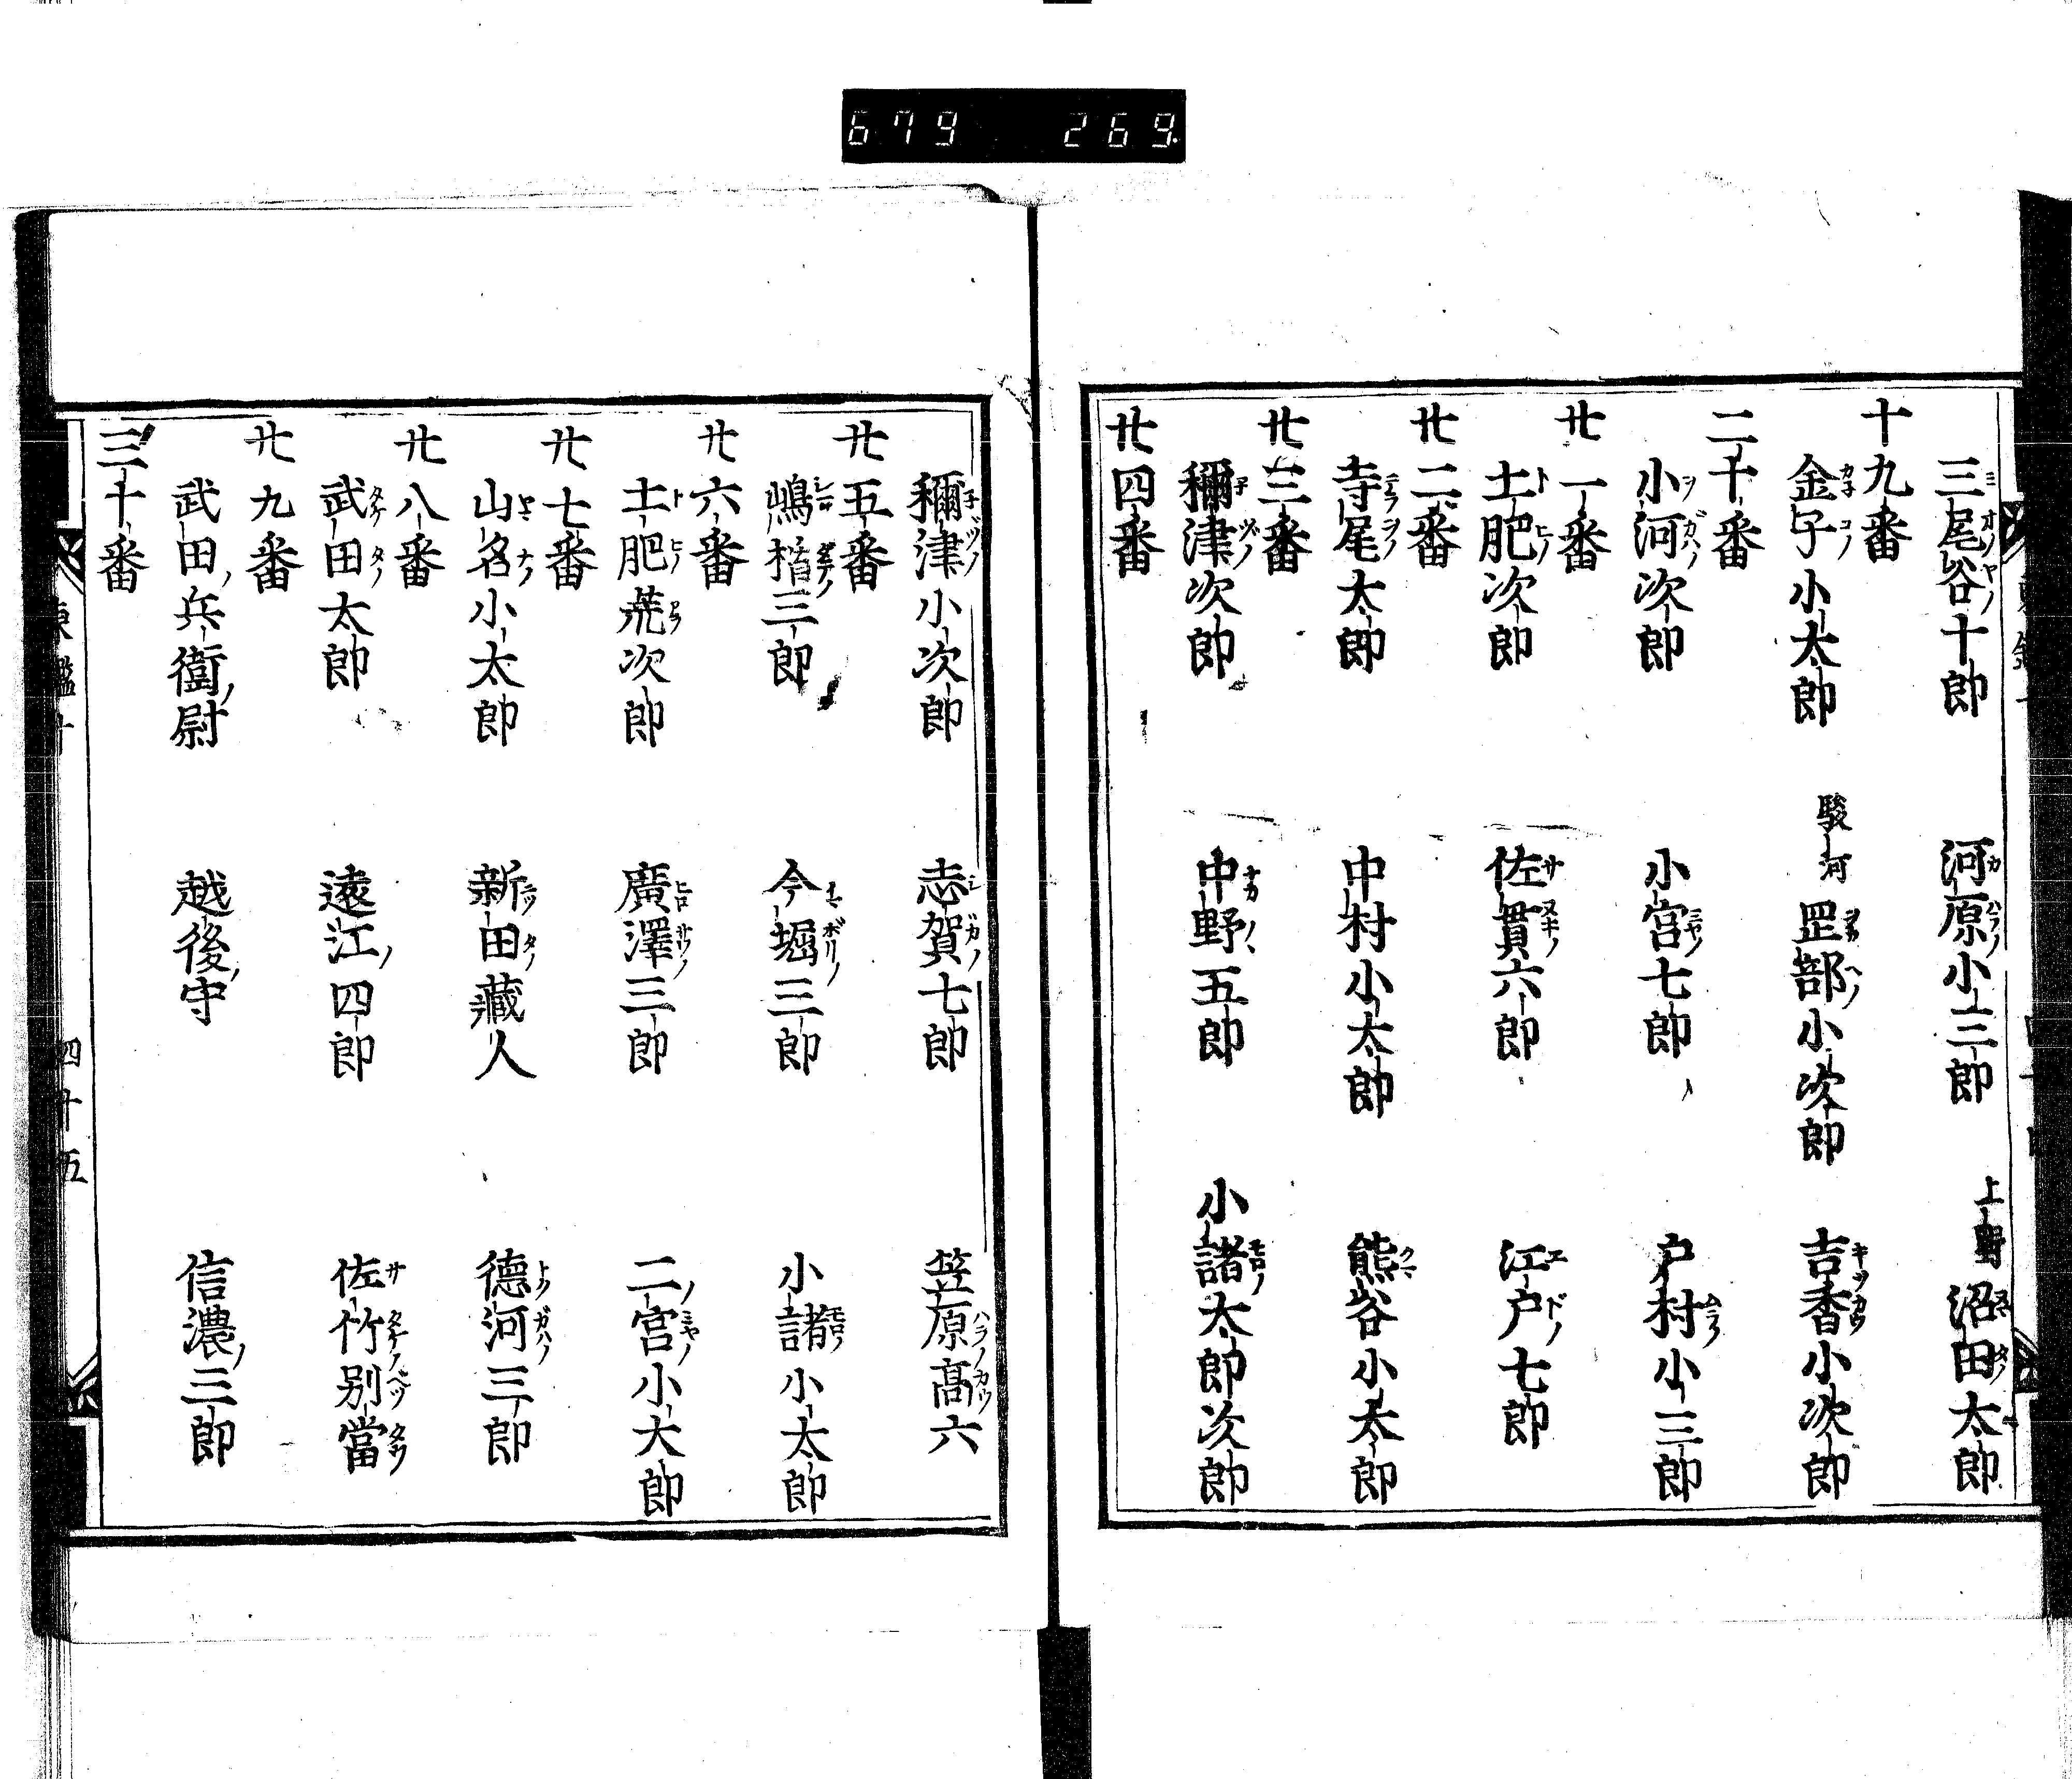 679 269
三尾谷十郎 河原小三郎 上野沼田太郎
十九番
金子小太郎 駿河罡部小次郎 吉香小次郎
二十番
小河次郎 小宮七郎 戸村小三郎
廿一番
土肥次郎 佐貫六郎 江戸七郎
廿二番
寺尾太郎 中村小太郎 熊谷小太郎
廿三番
禰津次郎 中野五郎 小諸太郎次郎
廿四番
禰津小次郎 志賀七郎 笠原髙六
廿五番
嶋楯三郎 今堀三郎 小諸小太郎
廿六番
土肥荒次郎 廣澤三郎 二宮小太郎
廿七番
山名小太郎 新田藏人 德河三郎
廿八番
武田太郎 遠江四郎 佐竹別當
廿九番
武田兵衞尉 越後守 信濃三郎
三十番
四十五